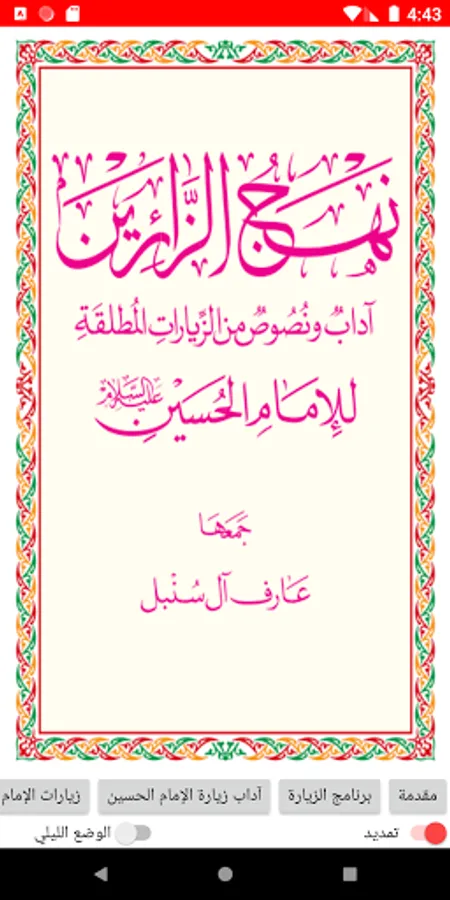 4:43
نهج الزائرين
آدابٌ ونُصُوصٌ من الزِّيارات المُطلقَةِ
للإمَامِ الحُسَينِ عليه السَّلام
جَمعهَا
عَارف آل سُنْبل
مقدمة
برنامج الزيارة
آداب زيارة الإمام الحسين
زيارات الإمام
تمديد
الوضع الليلي